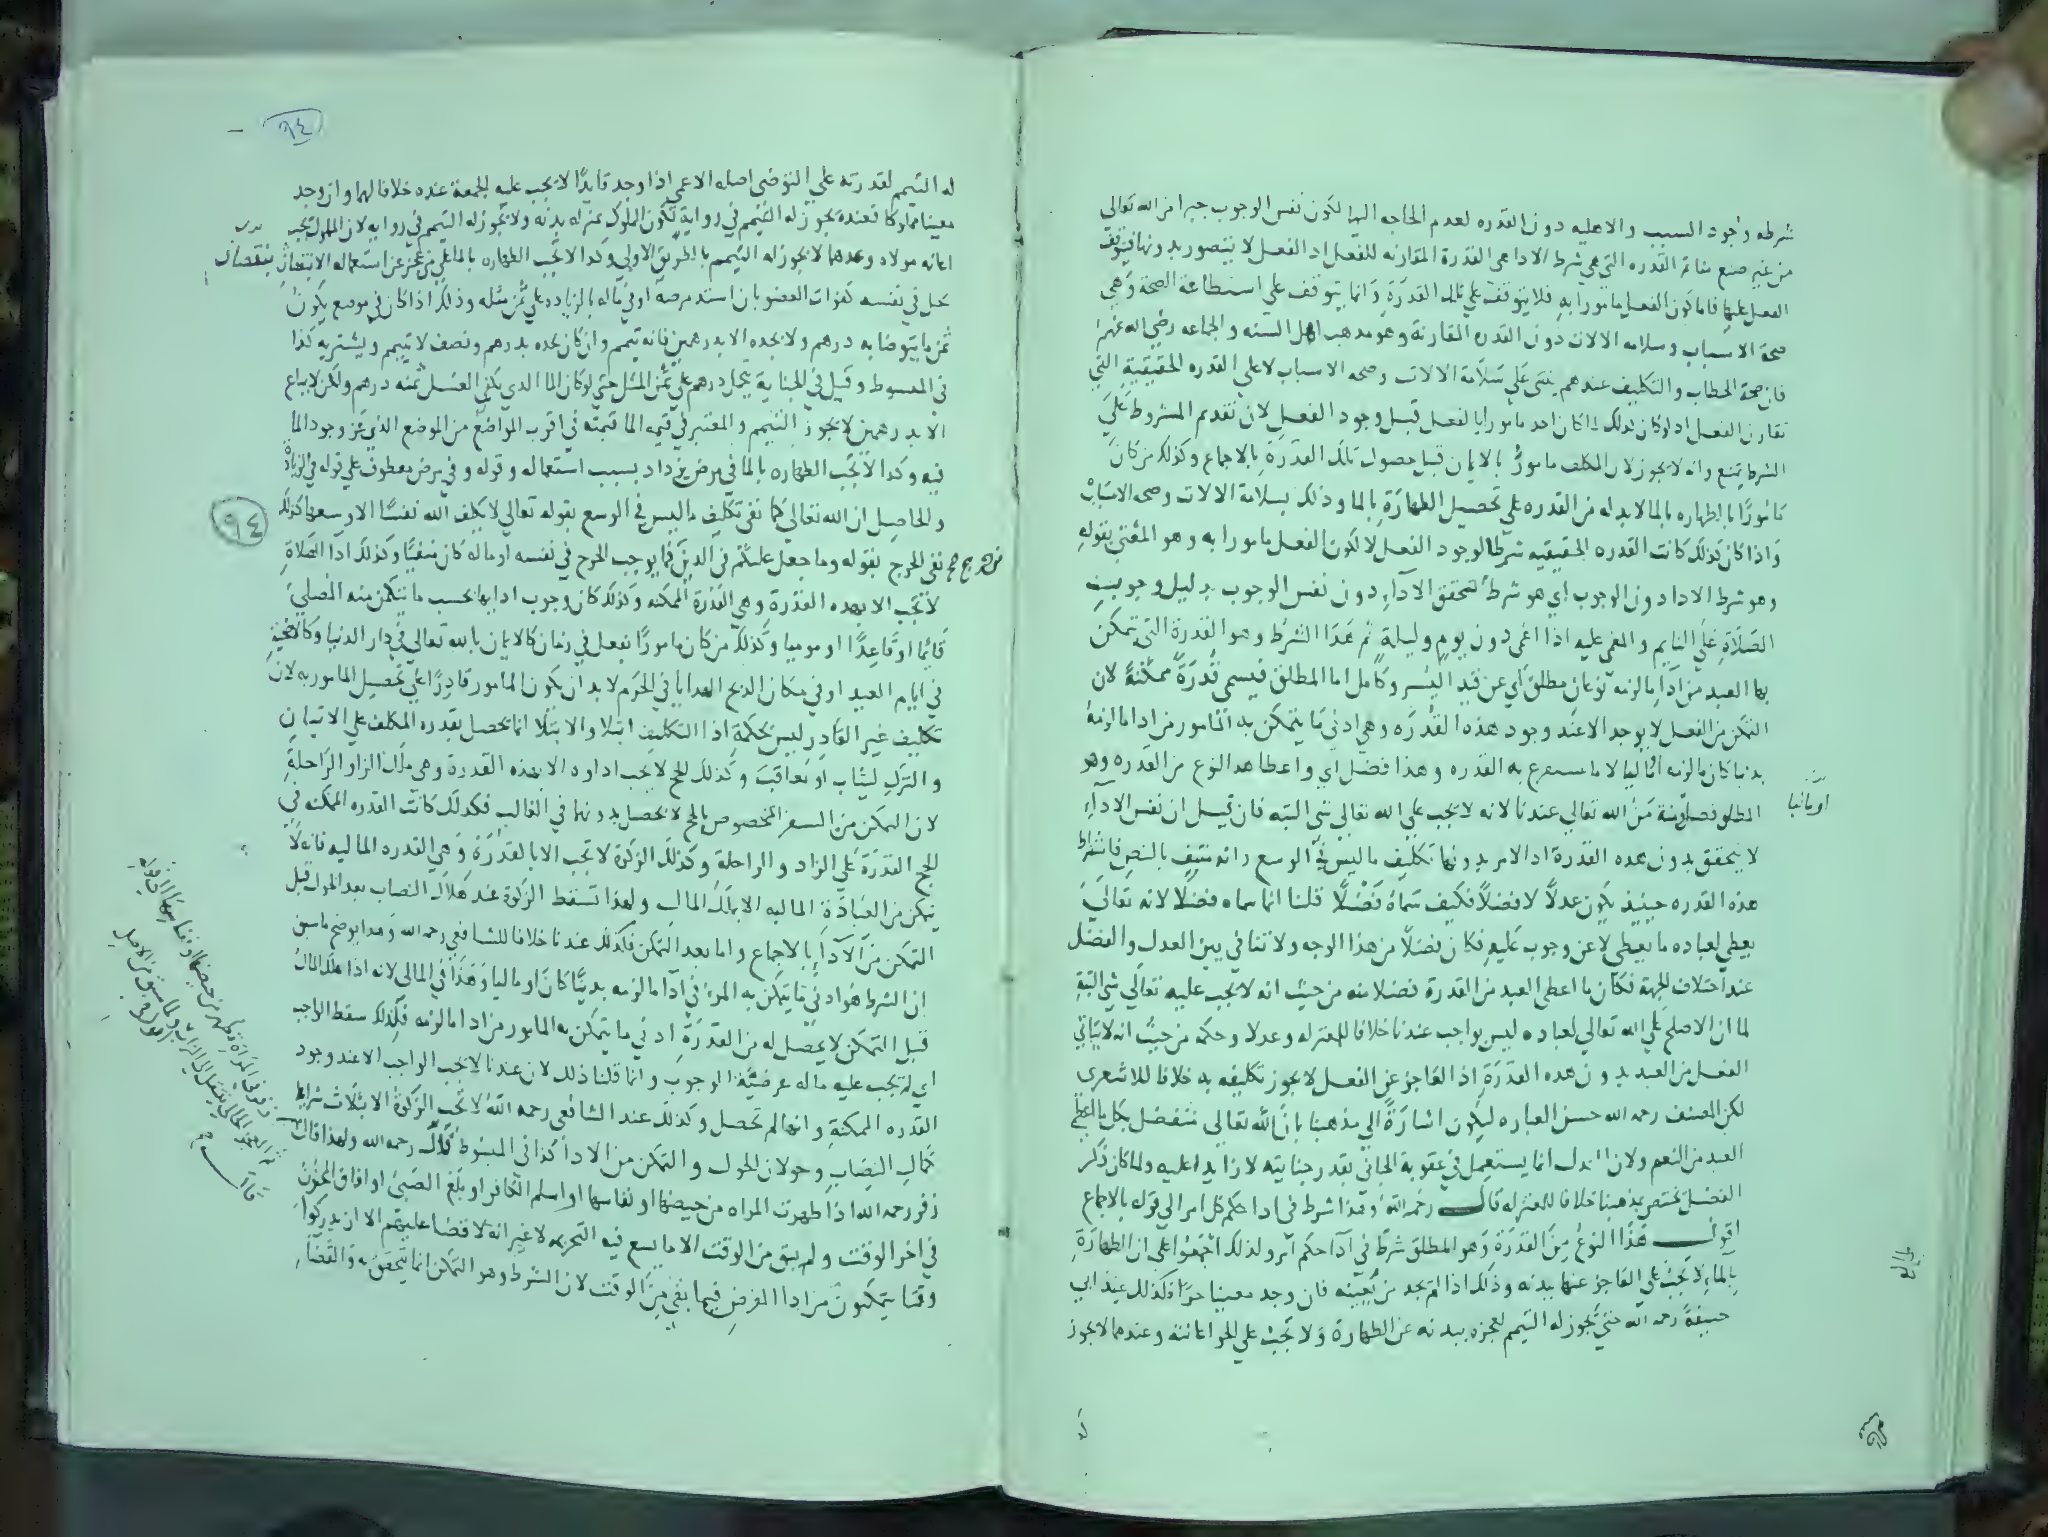 شرطه وجود السبب والاهليه دون القدره لعدم الحاجه اليها لكون نفس الوجوب جبرا من الله تعالى
من غير صنع منا ثم القدره التي هي شرط الاداء هي القدرة المقارنه للفعل اذ الفعل لا يتصور بدونها فيتوقف
الفعل عليها فاما كون الفعل مامورا به فلا يتوقف على تلك القدرة وانما يتوقف على استطاعة الصحة وهي
صحة الاسباب وسلامه الالات دون القدره المقارنة وهو مذهب اهل السنه والجماعه رضي الله عنهم
فان صحة الخطاب والتكليف عندهم يبتنى على سلامة الالات وصحه الاسباب لا على القدره الحقيقية التي
تقارن الفعل اذ لو كان كذلك لما كان احد مامورا بالفعل قبل وجود الفعل لان تقدم المشروط على
الشرط يمتنع وانه لا يجوز لان المكلف مامور بالايمان قبل حصول تلك القدرة بالاجماع وكذلك من كان
مامورا بالطهاره بالما لا بد له من القدره على تحصيل الطهارة بالما وذلك بسلامة الالات وصحه الاسباب
واذا كان كذلك كانت القدره الحقيقيه شرطا لوجود الفعل لا لكون الفعل مامورا به وهو المعنى بقوله
وهو شرط الادا دون الوجوب اي هو شرط لتحقق الاداء دون نفس الوجوب بدليل وجوب
الصلاة على النايم والمغمى عليه اذا اغمي دون يوم وليلة ثم هذا الشرط وهو القدرة التي يتمكن
بها العبد من اداء ما لزمه نوعان مطلق اي عن قيد اليسر وكامل اما المطلق فيسمى قدرة ممكنة لان
التمكن من الفعل لا يوجد الا عند وجود هذه القدره وهي ادنى ما يتمكن به المامور من ادا ما لزمه
بدنيا كان ما لزمه او ماليا لا ما به القدره وهذا فضل اي واعطا هذا النوع من القدره وهو
او ماليا
المطلق فضل ومنة من الله تعالى عندنا لانه لا يجب على الله تعالى شي البته فان قيل ان نفس الاداء
لا يتحقق بدون هذه القدرة اذ الامر بدونها تكليف ما ليس في الوسع وانه منتف بالنص فاشتراط
هذه القدره حينيذ يكون عدلا لا فضلا فكيف سماه فضلا قلنا انما سماه فضلا لانه تعالى
يعطي لعباده ما يعطي لا عن وجوب عليه فكان فضلا من هذا الوجه ولا تنافي بين العدل والفضل
عند اختلاف الجهة فكان ما اعطى العبد من القدرة فضلا منه من حيث انه لا يجب عليه تعالى شي البتة
لما ان الاصلح على الله تعالى لعباده ليس بواجب عندنا خلافا للمعتزله وعدلا وحكمه من حيث انه لا يتاتى
الفعل من العبد بدون هذه القدرة اذ العاجز عن الفعل لا يجوز تكليفه به خلافا للاشعرى
لكن المصنف رحمه الله حسن العباره ليكون اشارة الى مذهبنا بان الله تعالى متفضل بكل ما اعطى
العبد من النعم ولان العدل انما يستعمل في عقوبة الجاني بقدر جنايته لا زايدا عليه ولما كان ذكر
الفضل مختص بمذهبنا خلافا للمعتزله قال رحمه الله وهذا شرط في ادا حكم كل امر الى قوله بالاجماع
اقول هذا النوع من القدرة وهو المطلق شرط في اداء حكم امر ولذلك اجمعوا على ان الطهارة
بالماء لا تجب على العاجز عنها ببدنه وذلك اذا لم يجد من يعينه فان وجد معينا حرا فكذلك عند ابي
حنيفة رحمه الله حتى يجوز له التيمم لعجزه ببدنه عن الطهارة ولا تجب على الحر اعانته وعندهما لا يجوز
٩٤
له التيمم لقدرته على التوضي اصله الاعمى اذا وجد قايدا لا يجب عليه الجمعة عنده خلافا لهما وان وجد
معينا مملوكا فعنده يجوز له التيمم في رواية لكون المملوك بمنزلة بدنه ولا يجوز له التيمم في روايه لان المملوك يجب
اعانه مولاه وعندهما لا يجوز له التيمم بالطريق الاولى وكذا لا تجب الطهاره بالما على من عجز عن استعماله الا بنقصان
يحل في نفسه كفوات العضو بان استد مرضه او في ماله بالزياده على ثمن مثله وذلك اذا كان في موضع يكون
ثمن ما يتوضا به درهم ولا يجده الا بدرهمين فانه يتيمم وان كان يجده بدرهم ونصف لا يتيمم ويشتريه كذا
في المبسوط وقيل في الجناية يتحمل درهم على ثمن المثل حتى لو كان الما الذي يكفي الغسل ثمنه درهم ولكن لا يباع
الا بدرهمين لا يجوز التيمم والمعتبر في قيمه الما قيمته في اقرب المواضع من الموضع الذي عز وجود الما
فيه وكذا لا تجب الطهاره بالما في مرض يزداد بسبب استعماله وقوله وفي مرض معطوف على قوله في الزيادة
والحاصل ان الله تعالى كما نفى تكليف ما ليس في الوسع بقوله تعالى لا يكلف الله نفسا الا وسعها كذلك
٩٤
نفى الحرج بقوله وما جعل عليكم في الدين من حرج فما يوجب الحرج في نفسه او ماله كان منفيا وكذلك ادا الصلاة
لا تجب الا بهذه القدرة وهي القدرة الممكنه وكذلك كان وجوب ادايها بحسب ما يتمكن منه المصلي
قائما او قاعدا او موميا وكذلك من كان مامورا بفعل في زمان كالايمان بالله تعالى في دار الدنيا وكالاضحية
في ايام العيد او في مكان الذبح الهدايا في الحرم لا بد ان يكون المامور قادرا على تحصيل المامور به لان
تكليف غير القادر ليس بحكمة اذا التكليف ابتلا والابتلا انما يحصل بقدره المكلف على الاتيان
والترك ليثاب او يعاقب وكذلك الحج لا يجب اداوه الا بهذه القدرة وهي ملك الزاد والراحلة
لان التمكن من السفر المخصوص بالحج لا يحصل بدونهما في الغالب فكذلك كانت القدره الممكنه في
الحج القدرة على الزاد والراحلة وكذلك الزكوة لا تجب الا بالقدرة وهي القدره الماليه فانه لا
يتمكن من العبادة الماليه الا بملك المال ولهذا تسقط الزكوة عند هلاك النصاب بعد الحول قبل
التمكن من الاداء بالاجماع واما بعد التمكن فكذلك عندنا خلافا للشافعي رحمه الله وهذا يوضح ما سبق
ان الشرط هو ادنى ما يتمكن به المرء في اداء ما لزمه بدنيا كان او ماليا وهذا في المالي لانه اذا هلك المال
قبل التمكن لا يحصل له من القدرة ادنى ما يتمكن به المامور من ادا ما لزمه فكذلك سقط الواجب
اي لم يجب عليه ماله عرضية الوجوب وانما قلنا ذلك لان عندنا لا يجب الواجب الا عند وجود
القدره الممكنة وانها لم تحصل وكذلك عند الشافعي رحمه الله لا تجب الزكوة الا بثلاث شرايط
كمال النصاب وحولان الحول والتمكن من الادا كذا في المبسوط قال رحمه الله ولهذا قال
زفر رحمه الله اذا طهرت المراه من حيضها او نفاسها او اسلم الكافر او بلغ الصبي او افاق المجنون
في اخر الوقت ولم يبق من الوقت الا ما يسع فيه التحريمه لا غير انه لا قضا عليهم الا ان يدركوا
وقتا يتمكنون من ادا الفرض فيما بقي من الوقت لان الشرط وهو التمكن انما يتحقق به والقضاء